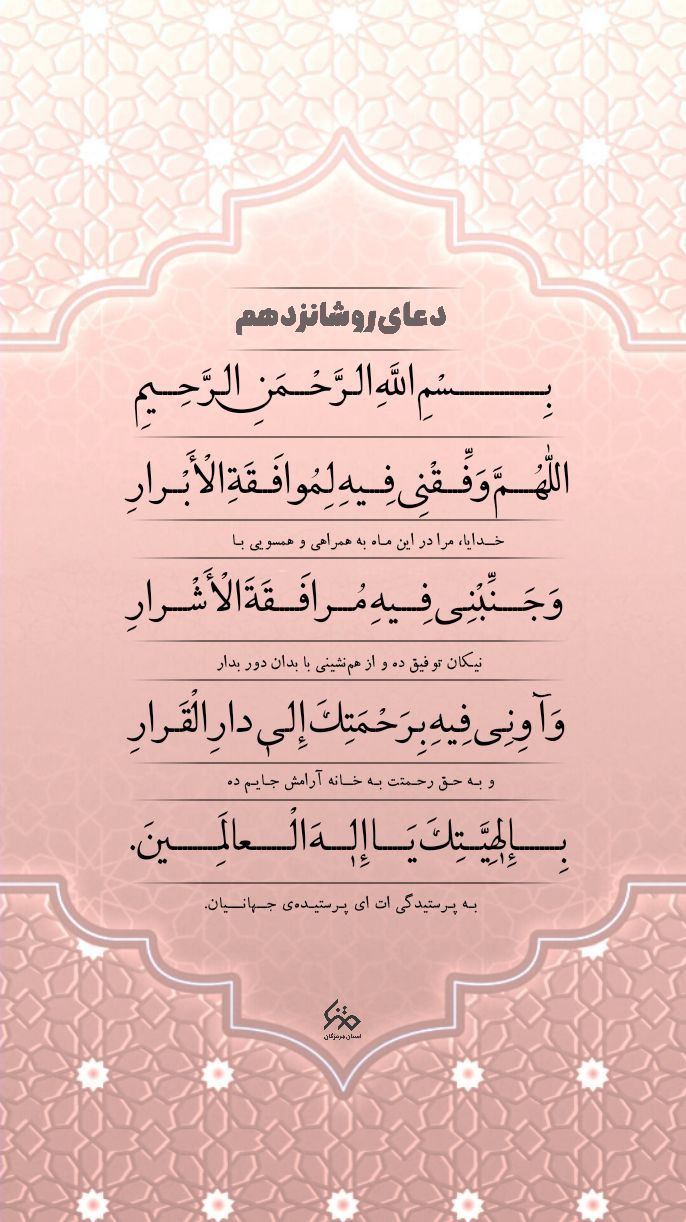 دعای روز شانزدهم
بِسْمِ اللَّهِ الرَّحْمَنِ الرَّحِيمِ
اللّٰهُمَّ وَفِّقْنِی فِیهِ لِمُوافَقَةِ الْأَبْرارِ
خدایا، مرا در این ماه به همراهی و همسویی با
وَجَنِّبْنِی فِیهِ مُرافَقَةَ الْأَشْرارِ
نیکان توفیق ده و از هم‌نشینی با بدان دور بدار
وَآوِنِی فِیهِ بِرَحْمَتِكَ إِلىٰ دارِ الْقَرارِ
و به حق رحمتت به خانه آرامش جایم ده
بِإِلٰهِیَّتِكَ یَا إِلٰهَ الْعالَمِینَ.
به پرستیدگی ات ای پرستیده‌ی جهانیان.
استان هرمزگان